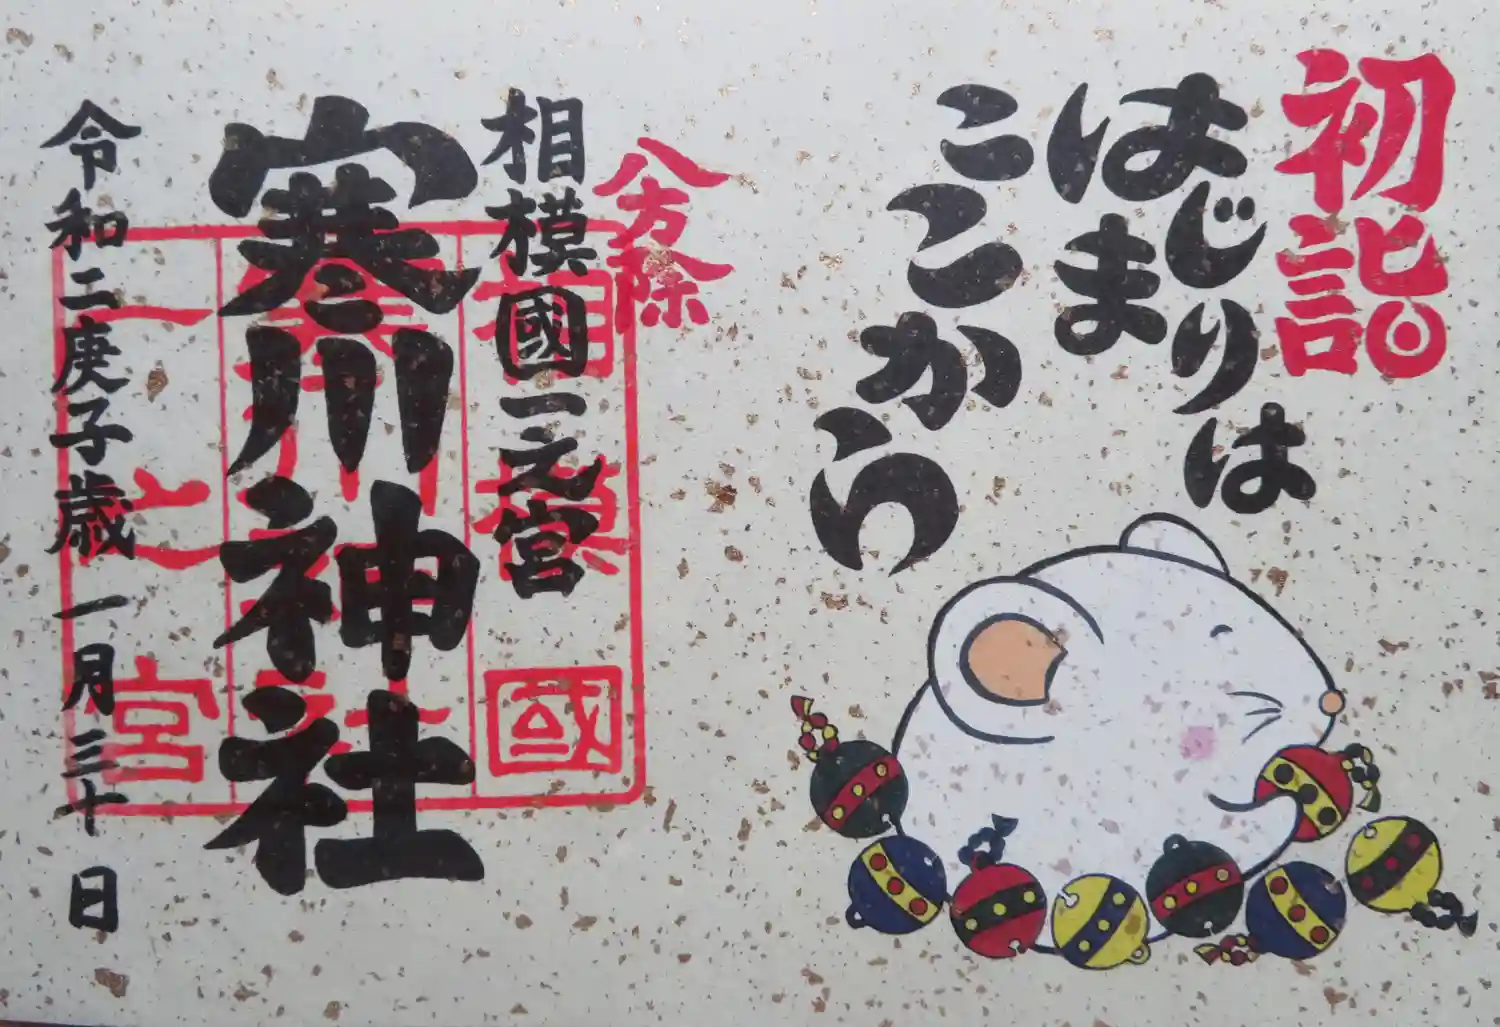 初詣
はじまりは
ここから
八方除
相模國一之宮
寒川神社
令和二庚子歳 一月三十日
相模國
寒川神社
一之宮